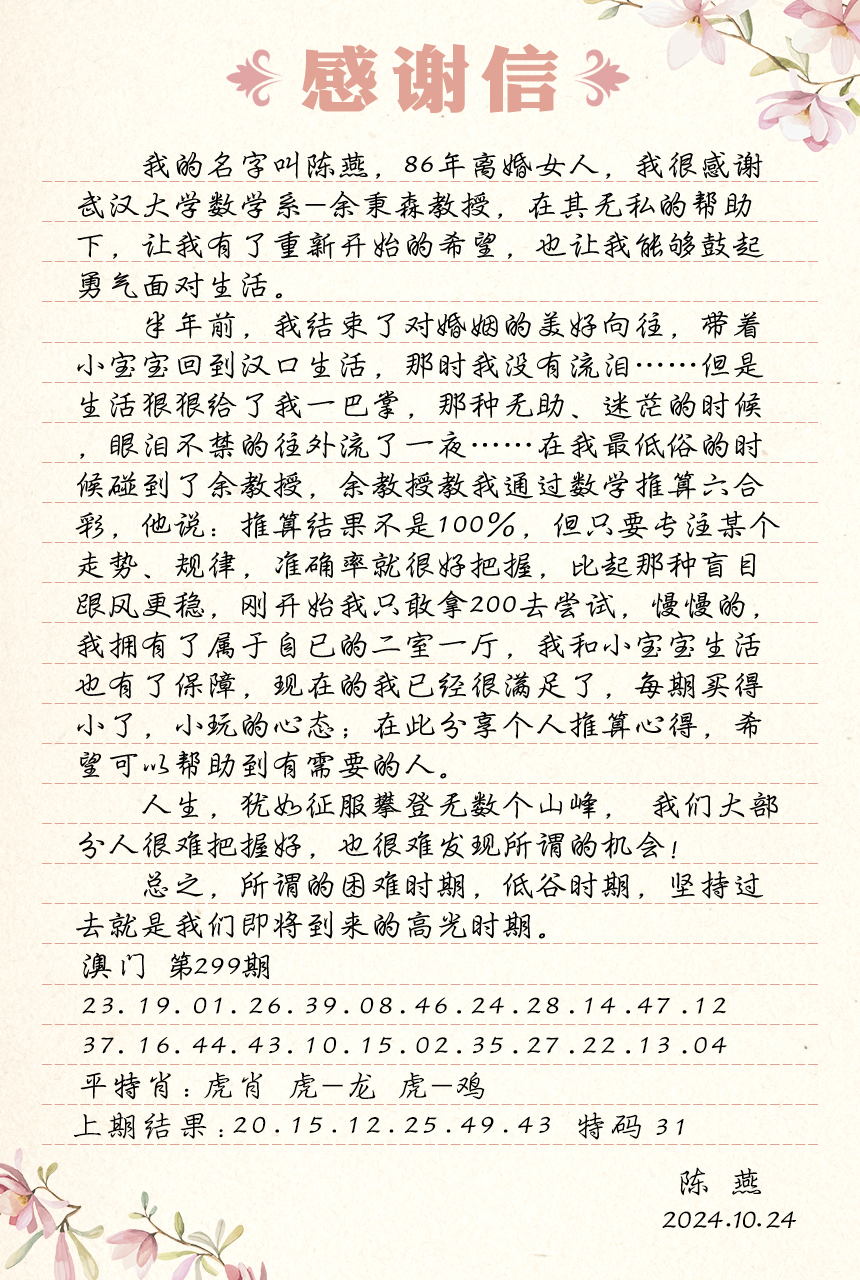 感谢信
我的名字叫陈燕，86年离婚女人，我很感谢
武汉大学数学系—余秉森教授，在其无私的帮助
下，让我有了重新开始的希望，也让我能够鼓起
勇气面对生活。
半年前，我结束了对婚姻的美好向往，带着
小宝宝回到汉口生活，那时我没有流泪……但是
生活狠狠给了我一巴掌，那种无助、迷茫的时候
，眼泪不禁的往外流了一夜……在我最低俗的时
候碰到了余教授，余教授教我通过数学推算六合
彩，他说：推算结果不是100%，但只要专注某个
走势、规律，准确率就很好把握，比起那种盲目
跟风更稳，刚开始我只敢拿200去尝试，慢慢的，
我拥有了属于自己的二室一厅，我和小宝宝生活
也有了保障，现在的我已经很满足了，每期买得
小了，小玩的心态；在此分享个人推算心得，希
望可以帮助到有需要的人。
人生，犹如征服攀登无数个山峰， 我们大部
分人很难把握好，也很难发现所谓的机会！
总之，所谓的困难时期，低谷时期，坚持过
去就是我们即将到来的高光时期。
澳门 第299期
23.19.01.26.39.08.46.24.28.14.47.12
37.16.44.43.10.15.02.35.27.22.13.04
平特肖：虎肖 虎—龙 虎—鸡
上期结果：20.15.12.25.49.43 特码 31
陈 燕
2024.10.24